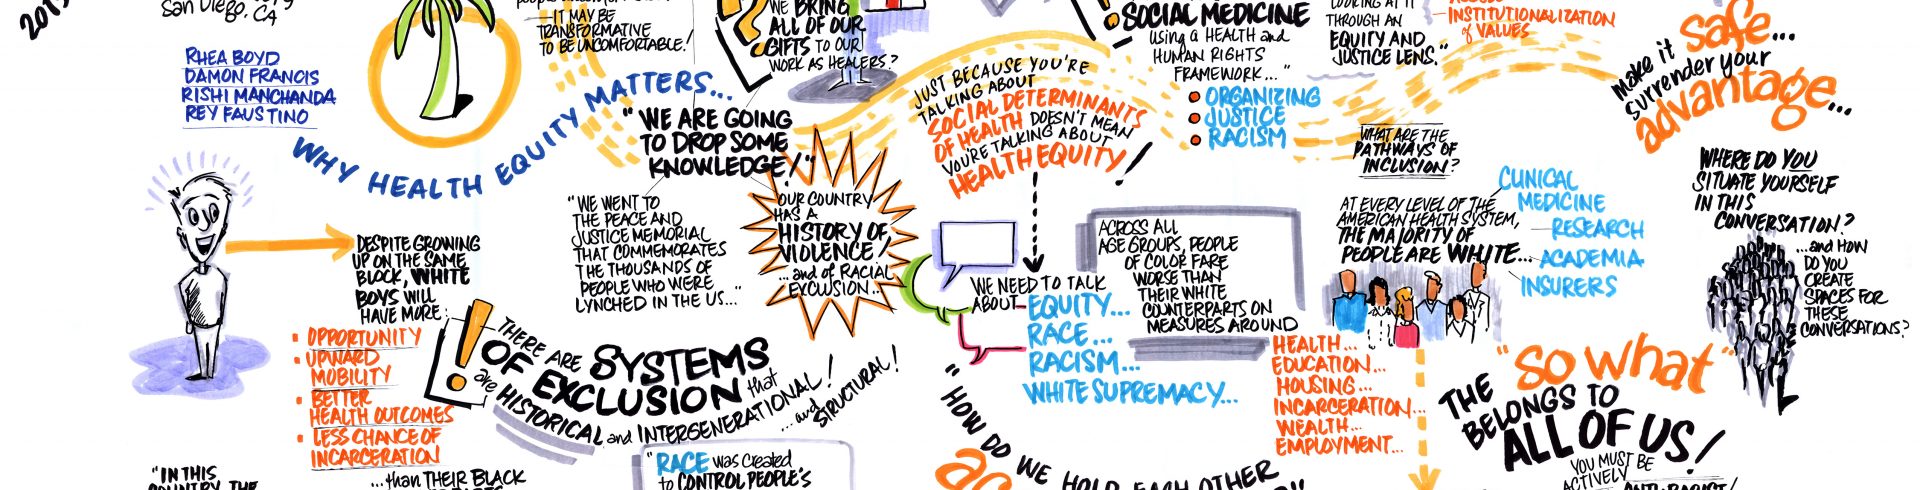 San Diego, CA
RHEA BOYD
DAMON FRANCIS
RISHI MANCHANDA
REY FAUSTINO
WHY HEALTH EQUITY MATTERS...
IT MAY BE
TRANSFORMATIVE
TO BE UNCOMFORTABLE!
"WE ARE GOING
TO DROP SOME
KNOWLEDGE!"
WE BRING
ALL OF OUR
GIFTS TO OUR
WORK AS HEALERS?
"WE WENT TO
THE PEACE AND
JUSTICE MEMORIAL
THAT COMMEMORATES
THE THOUSANDS OF
PEOPLE WHO WERE
LYNCHED IN THE US..."
OUR COUNTRY
HAS A
HISTORY OF
VIOLENCE!
...and of RACIAL
EXCLUSION...
DESPITE GROWING
UP ON THE SAME
BLOCK, WHITE
BOYS WILL
HAVE MORE:
• OPPORTUNITY
• UPWARD
MOBILITY
• BETTER
HEALTH OUTCOMES
• LESS CHANCE OF
INCARCERATION
...than THEIR BLACK
"IN THIS
COUNTRY, THE
THERE ARE SYSTEMS
OF EXCLUSION that
are HISTORICAL and INTERGENERATIONAL!
...and STRUCTURAL!
"RACE was CREATED
to CONTROL PEOPLE'S
JUST BECAUSE YOU'RE
TALKING ABOUT
SOCIAL DETERMINANTS
OF HEALTH DOESN'T MEAN
YOU'RE TALKING ABOUT
HEALTH EQUITY!
WE NEED TO TALK
ABOUT EQUITY...
RACE...
RACISM...
WHITE SUPREMACY...
"HOW DO WE HOLD EACH OTHER
SOCIAL MEDICINE
using a HEALTH and
HUMAN RIGHTS
FRAMEWORK..."
• ORGANIZING
• JUSTICE
• RACISM
ACROSS ALL
AGE GROUPS, PEOPLE
OF COLOR FARE
WORSE THAN
THEIR WHITE
COUNTERPARTS ON
MEASURES AROUND
HEALTH...
EDUCATION...
HOUSING...
INCARCERATION...
WEALTH...
EMPLOYMENT...
LOOKING AT IT
THROUGH AN
EQUITY AND
JUSTICE LENS."
INSTITUTIONALIZATION
of VALUES
WHAT ARE THE
PATHWAYS OF
INCLUSION?
AT EVERY LEVEL OF THE
AMERICAN HEALTH SYSTEM,
THE MAJORITY OF
PEOPLE ARE WHITE...
CLINICAL
MEDICINE
RESEARCH
ACADEMIA
INSURERS
make it safe...
surrender your
advantage...
WHERE DO YOU
SITUATE YOURSELF
IN THIS
CONVERSATION?
...and HOW
DO YOU
CREATE
SPACES FOR
THESE
CONVERSATIONS?
THE "SO WHAT"
BELONGS TO
ALL OF US!
YOU MUST BE
ACTIVELY